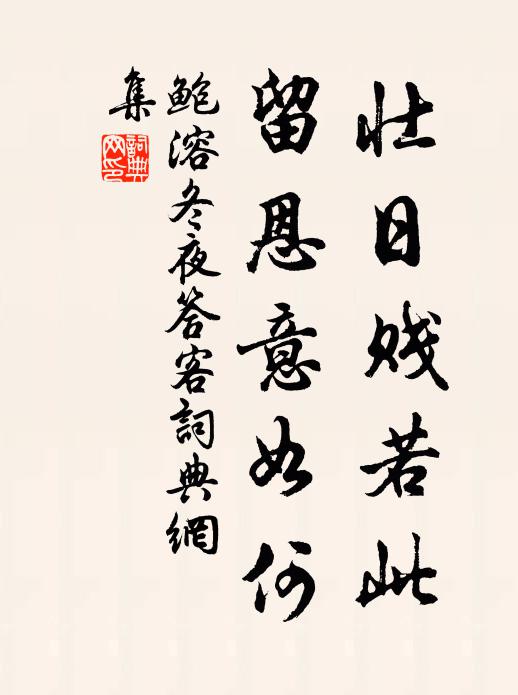 壮日贱若此
留恩意如何
鲍溶冬夜答客詞典網
集
詞典
网印